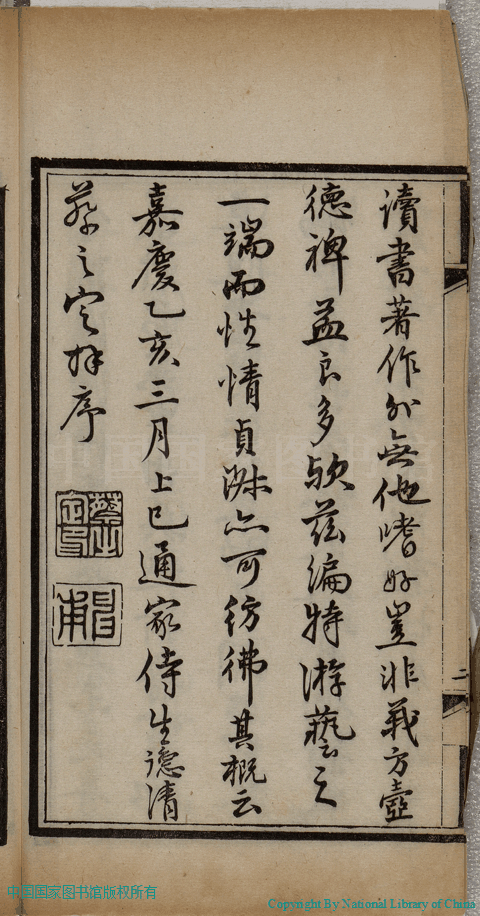 讀書著作外無他嗜好豈非蓺方壺
德裨益良多歟茲編特游藝之
一端而性情貞淑亦可彷彿其概云
嘉慶乙亥三月上巳通家侍生德清
蔡之定拜序
蔡之定印
昌甫
二
中国国家图书馆
中国国家图书馆版权所有
Copyright By National Library of China